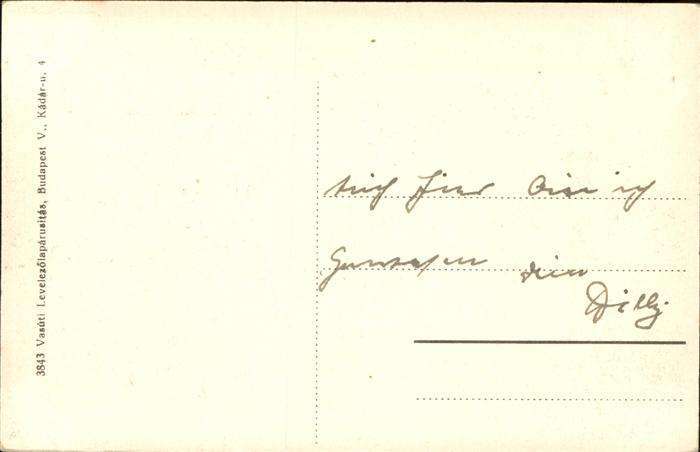 3843 Vasúti Levelezőlapárusitás, Budapest V., Kádár-u. 4
auch hier bin ich
gewesen dein
Willy